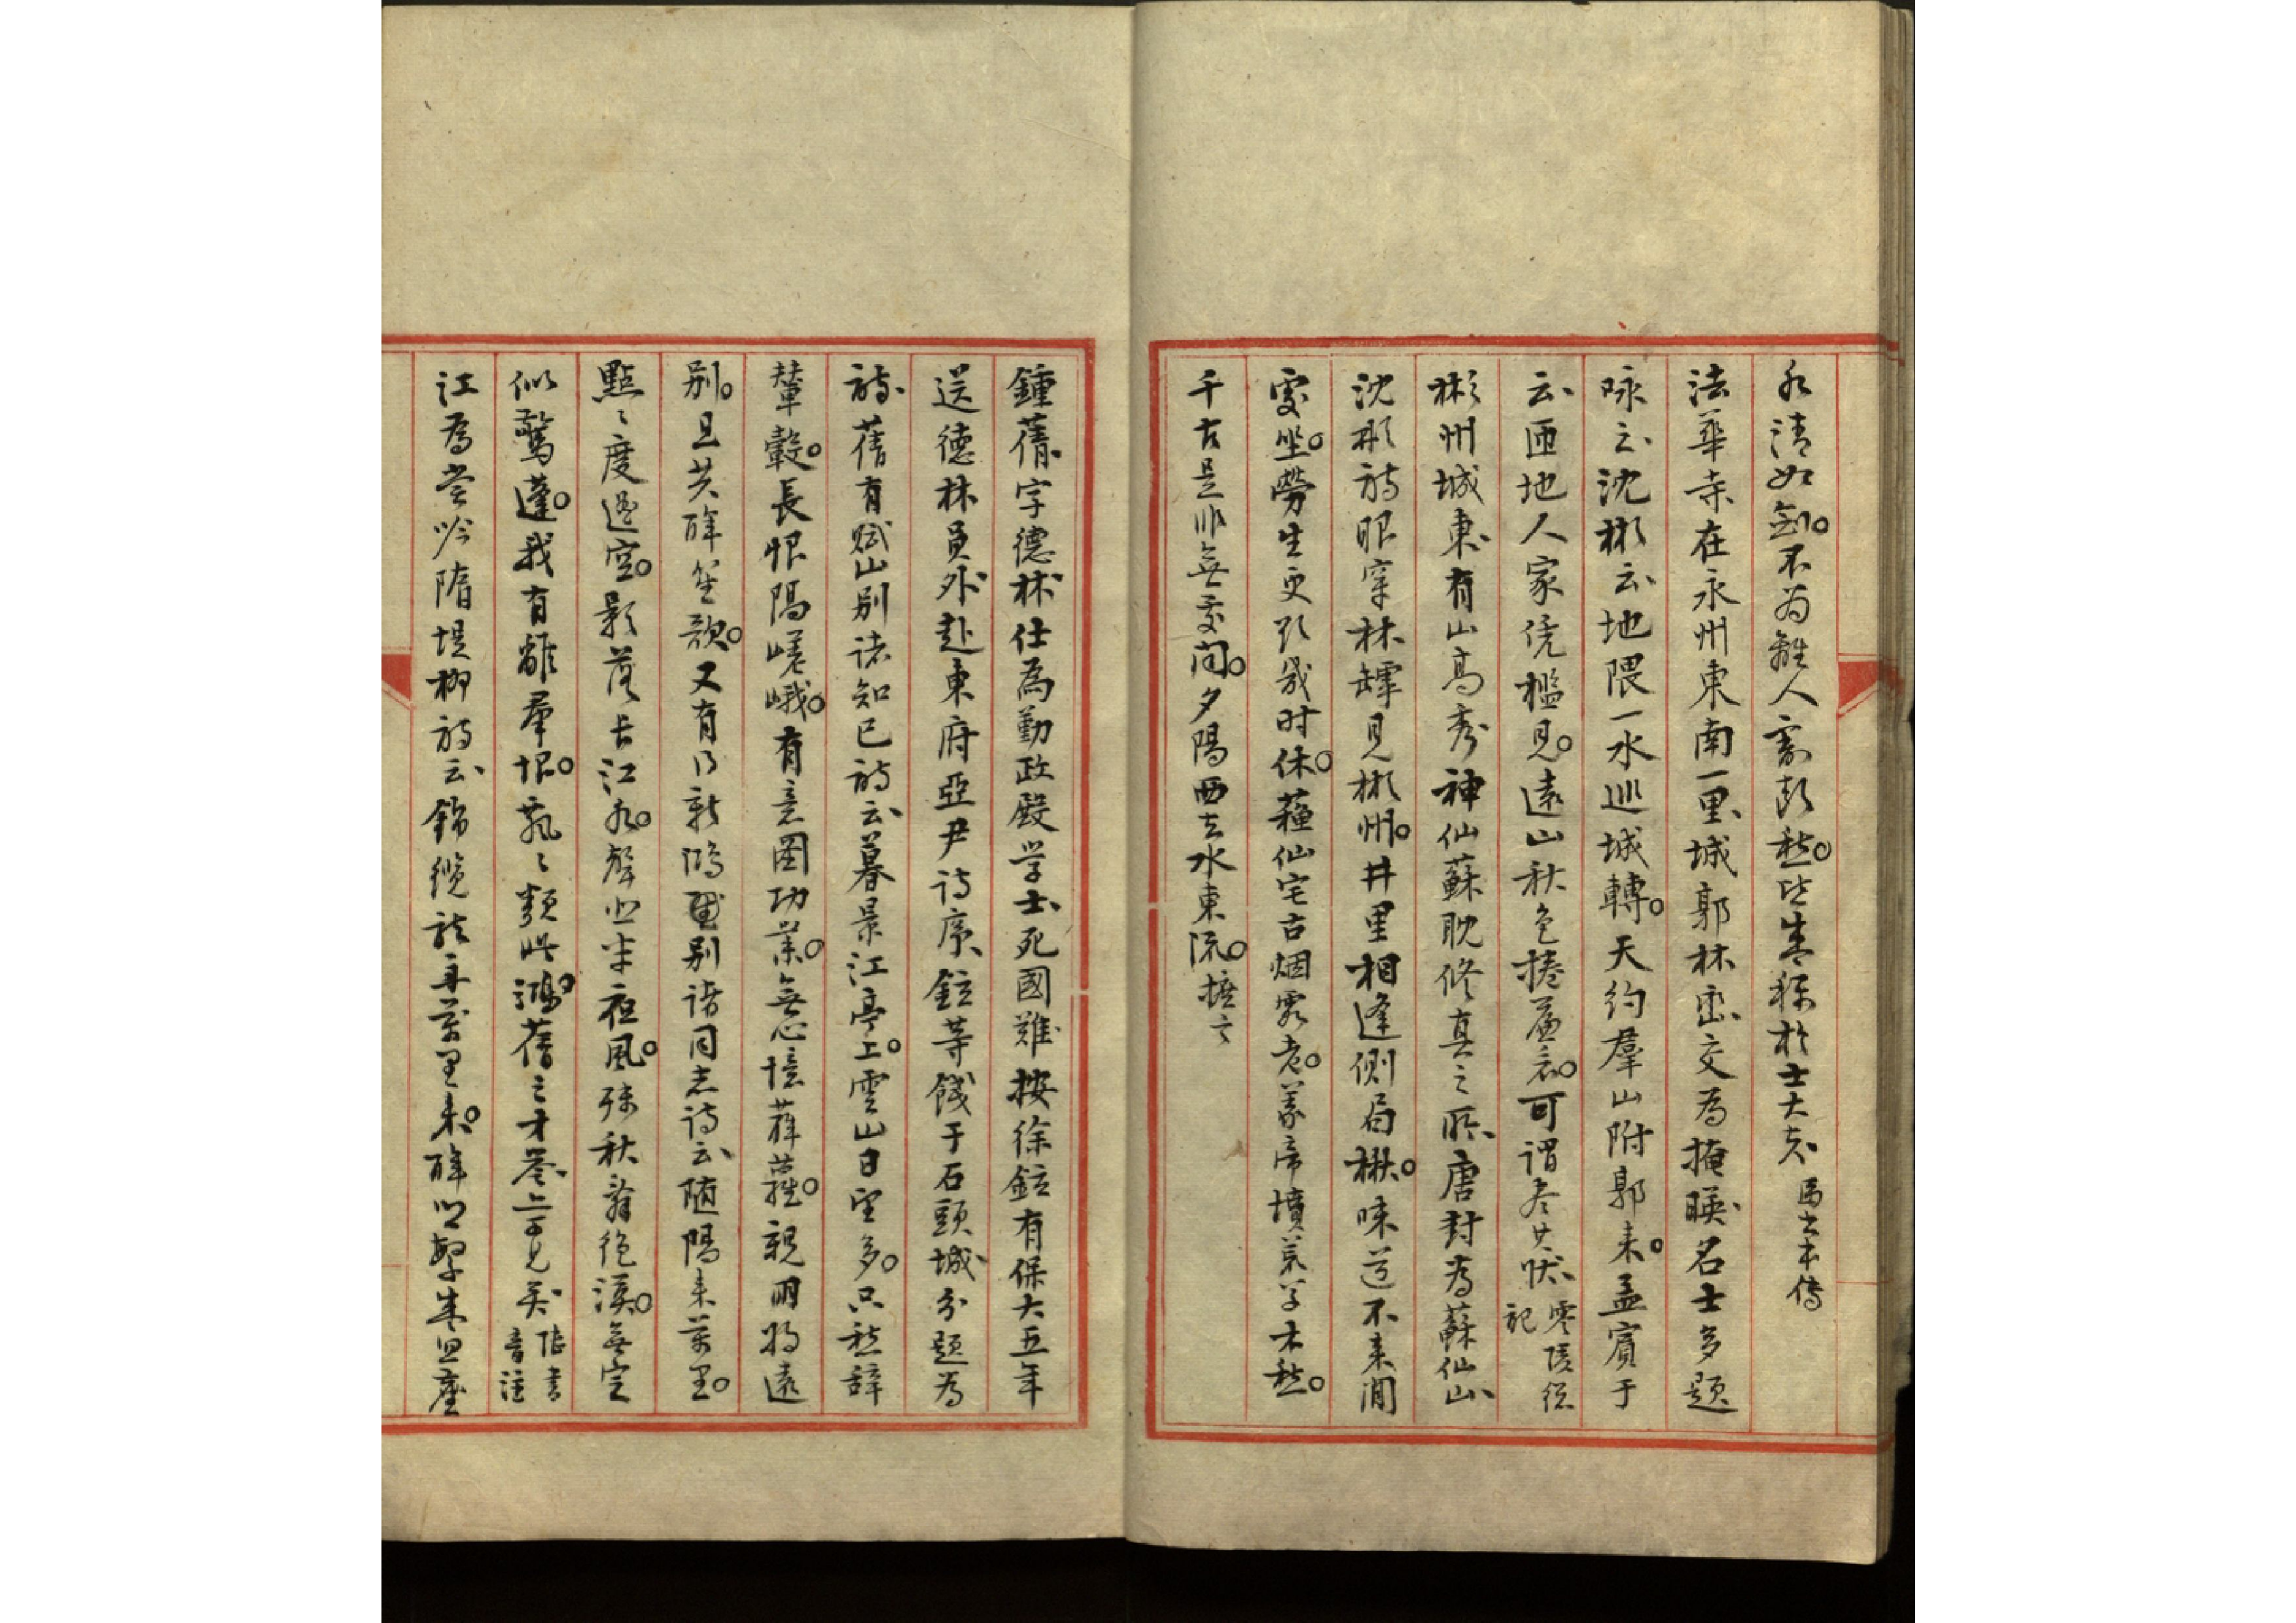 水清如劍不为離人割斷愁皆生稱於士大夫馬士本傳
法華寺在永州東南一里城郭林巒交為掩暎名士多題
咏云沈彬云地隈一水巡城轉天約羣山附郭来孟賓于
云匝地人家凭檻見遠山秋色捲簾看可謂尽其狀零陵総記
彬州城東有山高秀神仙蘇耽修真之所唐封為蘇仙山
沈彬詩眼穿林罅見彬州井里相逢側局楸味道不来閒
處坐勞生更欲幾时休蘓仙宅古烟霞老義帝墳荒草木愁
千古是非無處问夕陽西去水東流摭言
鍾蒨字德林仕為勤政殿学士死國難按徐鉉有保大五年
送德林員外赴東府亞尹詩序鉉等餞于石頭城分題为
詩蒨有赋山别诸知己詩云暮景江亭上雲山日望多只愁辞
輦轂長恨隔嵯峨有意圖功業無心憶薜蘿親朋将遠
别且共醉笙歌又有乃新鴻别诸同志詩云随陽来萬里
點〻度遥空影落长江水聲悲半夜風殘秋辭绝漠無定
似驚蓬我有離羣恨飄〻類此鴻蒨之才筆亦可見矣陸書音注
江為嘗吟隋堤柳詩云錦纜龍舟萬里来醉鄉繁盛忽塵